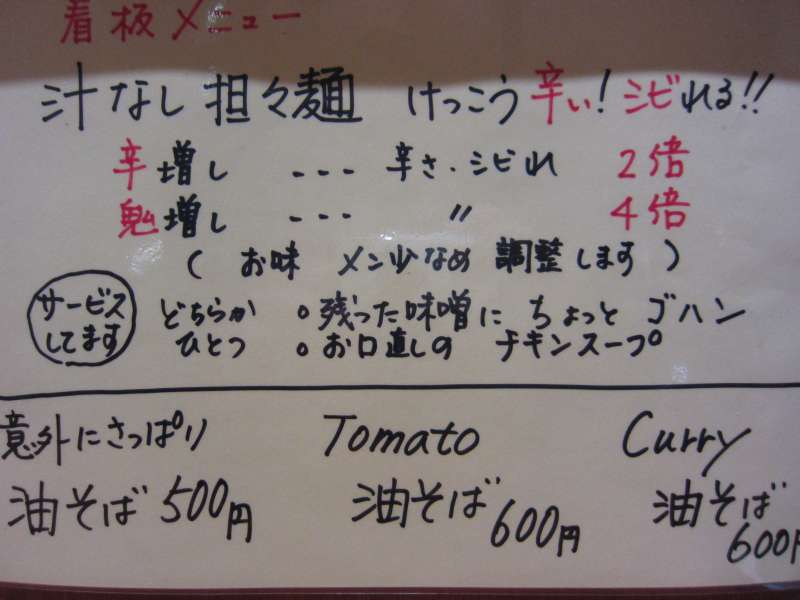 看板メニュー
汁なし担々麺 けっこう辛い! シビれる!!
辛増し --- 辛さ・シビれ 2倍
鬼増し --- 〃 4倍
( お味 メン少なめ 調整します )
サービスしてます
どちらかひとつ
○残った味噌に ちょっと ゴハン
○お口直しの チキンスープ
意外にさっぱり
油そば 500円
Tomato
油そば 600円
Curry
油そば
600円